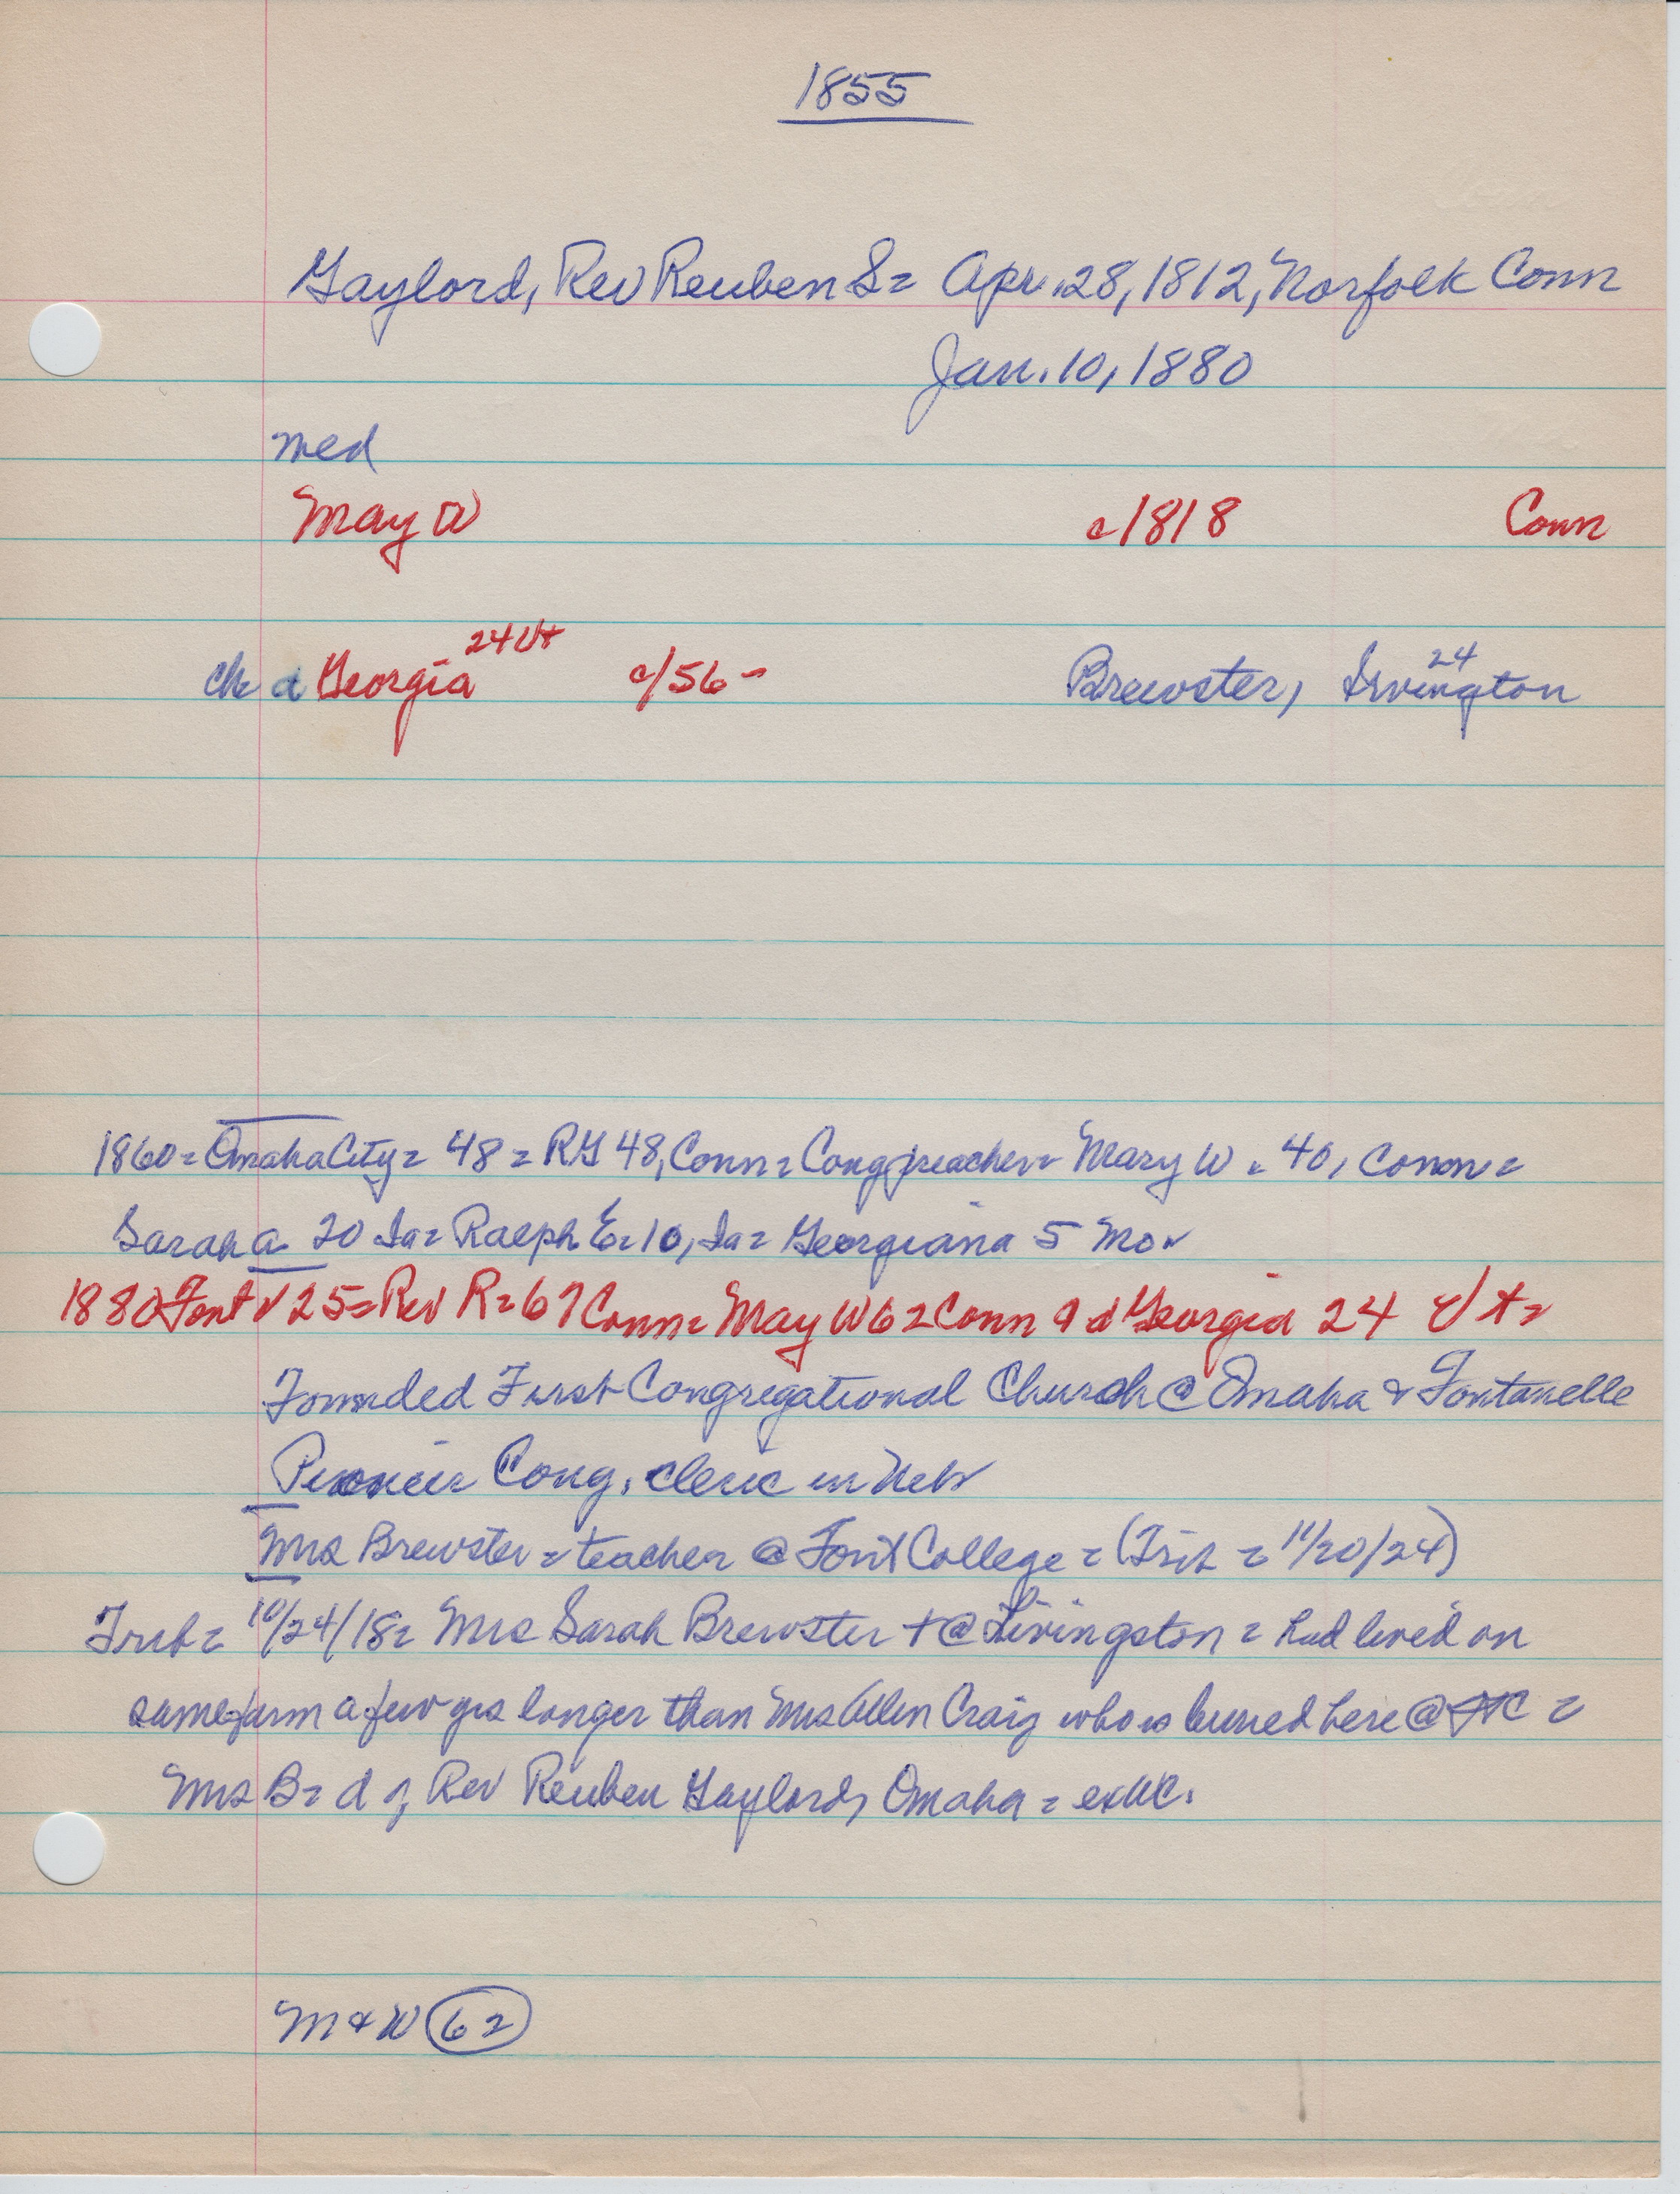 1855
Gaylord, Rev Reuben S = Apr. 28, 1812, Norfolk Conn
Jan. 10, 1880
med
May W c1818 Conn
24 Vt
ch d Georgia c/56- Brewster, Irvington
24
1860 = Omaha City = 48 = RG 48, Conn = Cong preacher = Mary W = 40, Conn =
Sarah A 20 Ia = Ralph E = 10, Ia = Georgiana 5 mo
1880 Font 25 = Rev R = 67 Conn = May W 62 Conn d Georgia 24 Vt =
Founded First Congregational Church @ Omaha & Fontanelle
Pioneer Cong. cleric in Neb
Mrs Brewster = teacher @ Font College = (Trib = 11/20/24)
Trib = 10/24/18 = Mrs Sarah Brewster + @ Livingston = had lived on
same farm a few yrs longer than Mrs Allen Craig who is buried here @
Mrs B = d of Rev Reuben Gaylord, Omaha =
M & W 62